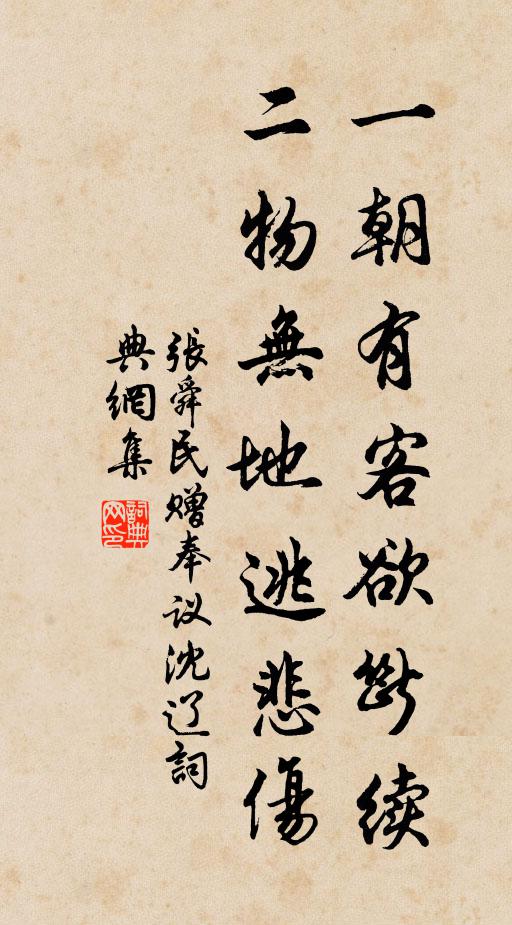 一朝有客欲斷续
二物無地逃悲傷
張舜民贈奉议沈辽詞
典網集
詞典网印